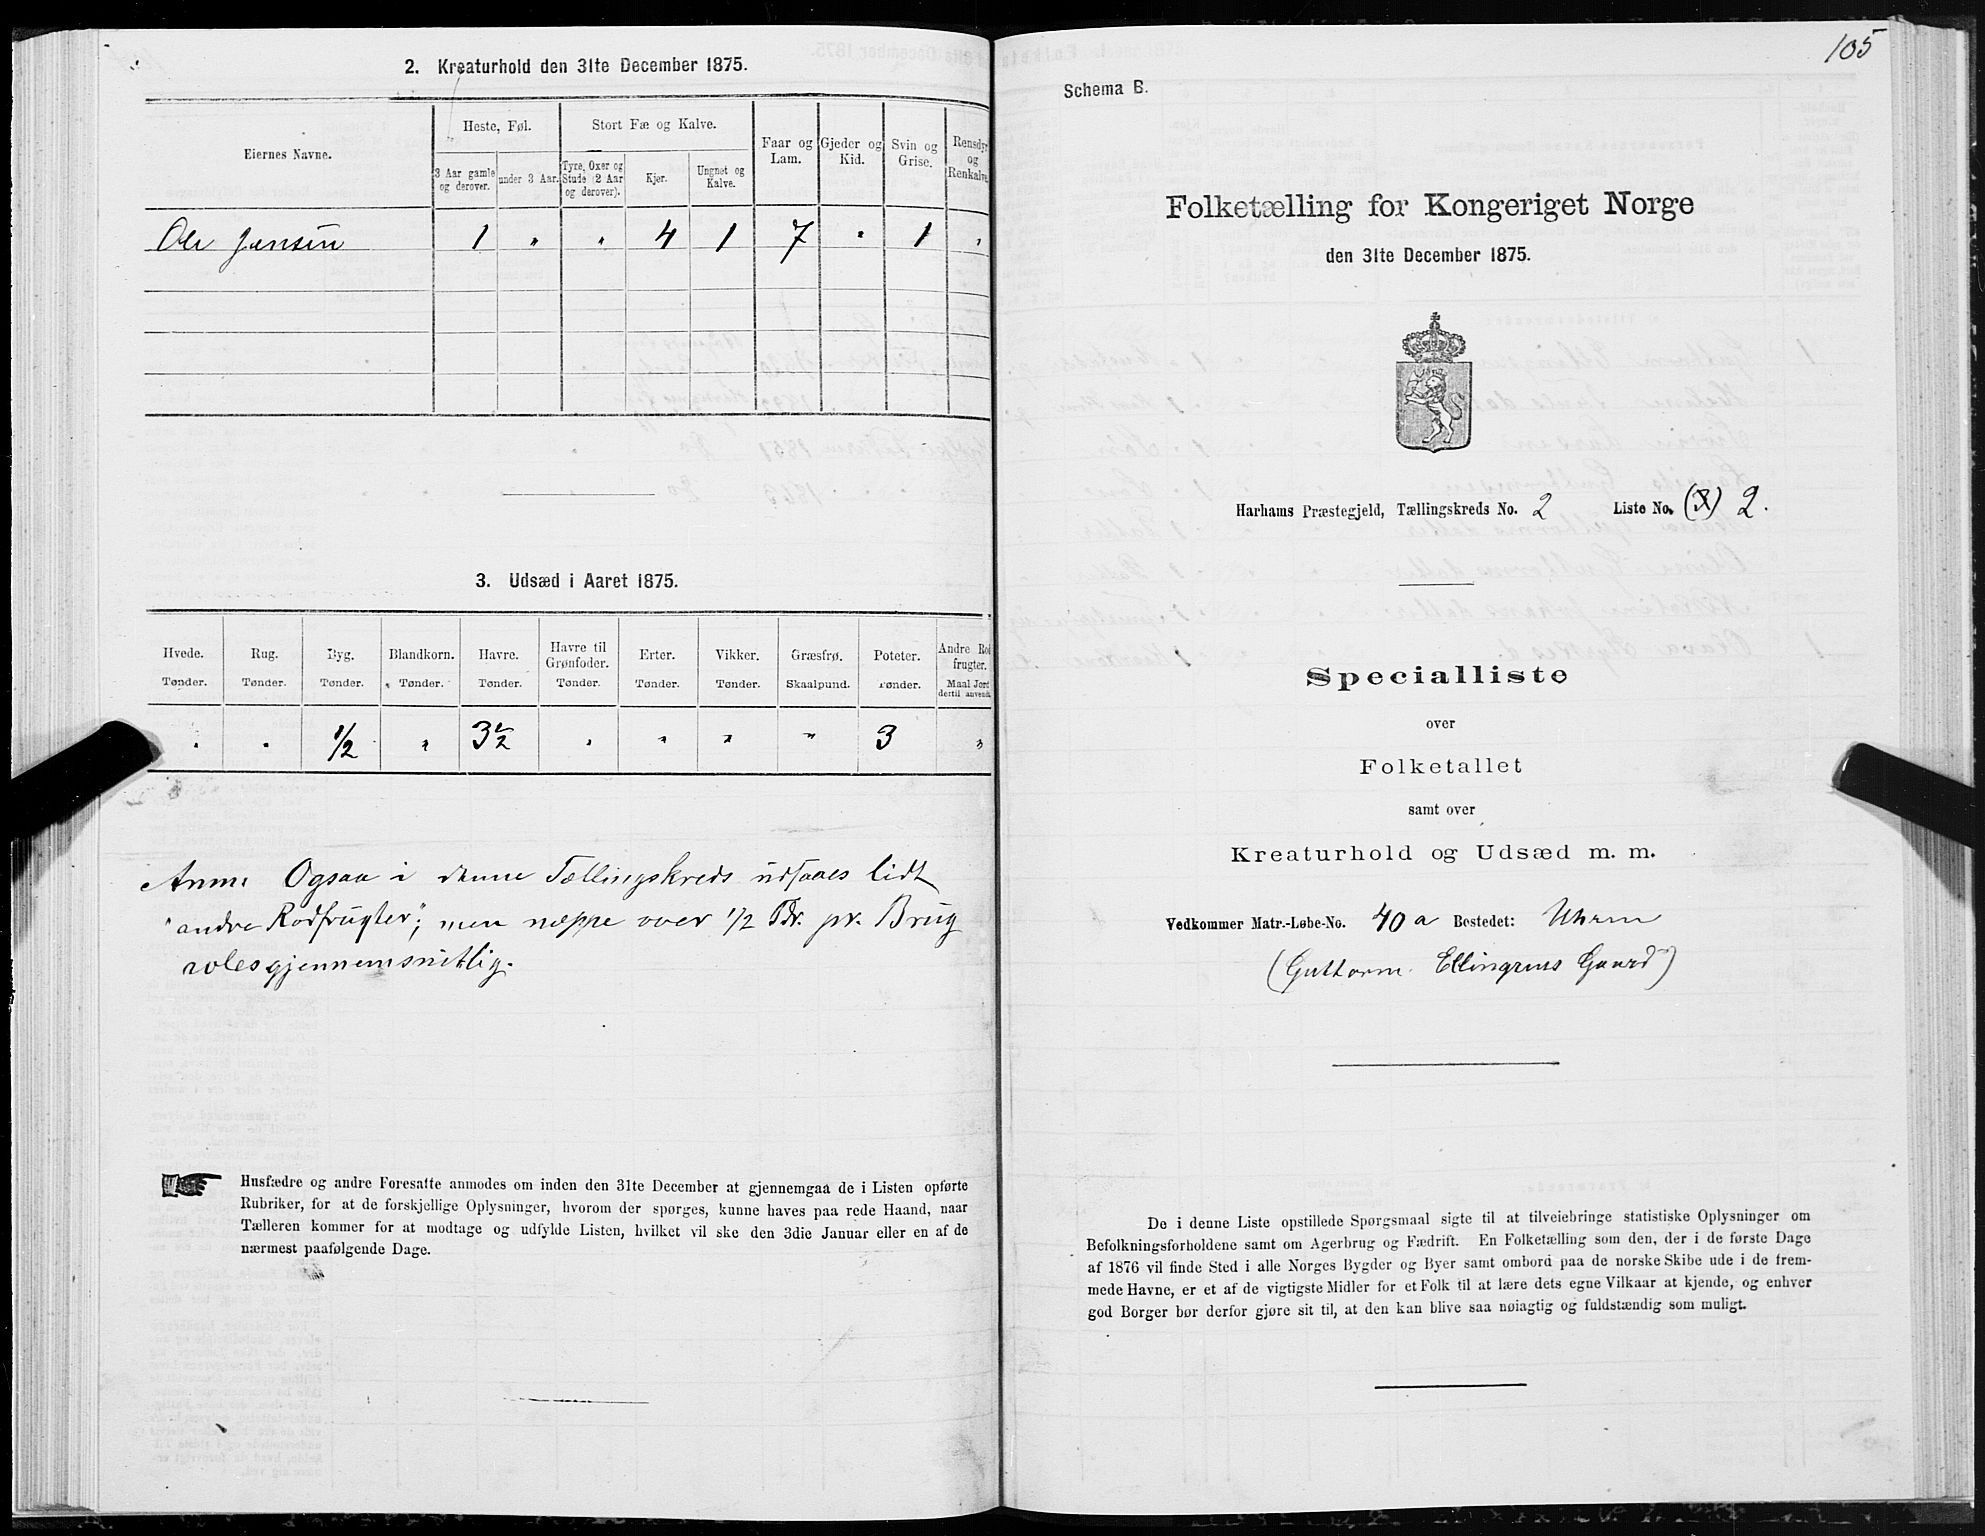 2. Kreaturhold den 31te December 1875.
Eiernes Navne.
Heste, Føl.
Stort Fæ og Kalve.
Faar og Lam.
Gjeder og Kid.
Svin og Grise.
Rensdyr og Renkalve.
3 Aar gamle og derover.
under 3 Aar.
Tyre, Oxer og Stude (2 Aar og derover).
Kjør.
Ungnet og Kalve.
Ole Jensen 1 " " 4 1 7 " 1 "
3. Udsæd i Aaret 1875.
Hvede. Rug. Byg. Blandkorn. Havre. Havre til Grønfoder. Erter. Vikker. Græsfrø. Poteter. Andre Rodfrugter.
Tønder. Tønder. Tønder. Tønder. Tønder. Tønder. Tønder. Tønder. Skaalpund. Tønder. Maal Jord dertil anvendt.
" " 1/2 " 3 1/2 " " " " 3 "
Anm. Ogsaa i denne Tællingskreds udsaaes lidt
"andre Rodfrugter"; men neppe over 1/2 Tdr. pr. Brug
gjennemsnitlig.
Husfædre og andre Foresatte anmodes om inden den 31te December at gjennemgaa de i Listen opførte
Rubriker, for at de forskjellige Oplysninger, hvorom der spørges, kunne haves paa rede Haand, naar
Tælleren kommer for at modtage og udfylde Listen, hvilket vil ske den 3die Januar eller en af de
nærmest paafølgende Dage.
105
Schema B.
Folketælling for Kongeriget Norge
den 31te December 1875.
Harhams Præstegjeld, Tællingskreds No. 2 Liste No. (3) 2.
Specialliste
over
Folketallet
samt over
Kreaturhold og Udsæd m. m.
Vedkommer Matr.-Løbe-No. 40 a Bostedet: Uhrem
(Guttorm Ellingsens Gaard)
De i denne Liste opstillede Spørgsmaal sigte til at tilveiebringe statistiske Oplysninger om
Befolkningsforholdene samt om Agerbrug og Fædrift. En Folketælling som den, der i de første Dage
af 1876 vil finde Sted i alle Norges Bygder og Byer samt ombord paa de norske Skibe ude i de frem-
mede Havne, er et af de vigtigste Midler for et Folk til at lære dets egne Vilkaar at kjende, og enhver
god Borger bør derfor gjøre sit til, at den kan blive saa nøiagtig og fuldstændig som muligt.